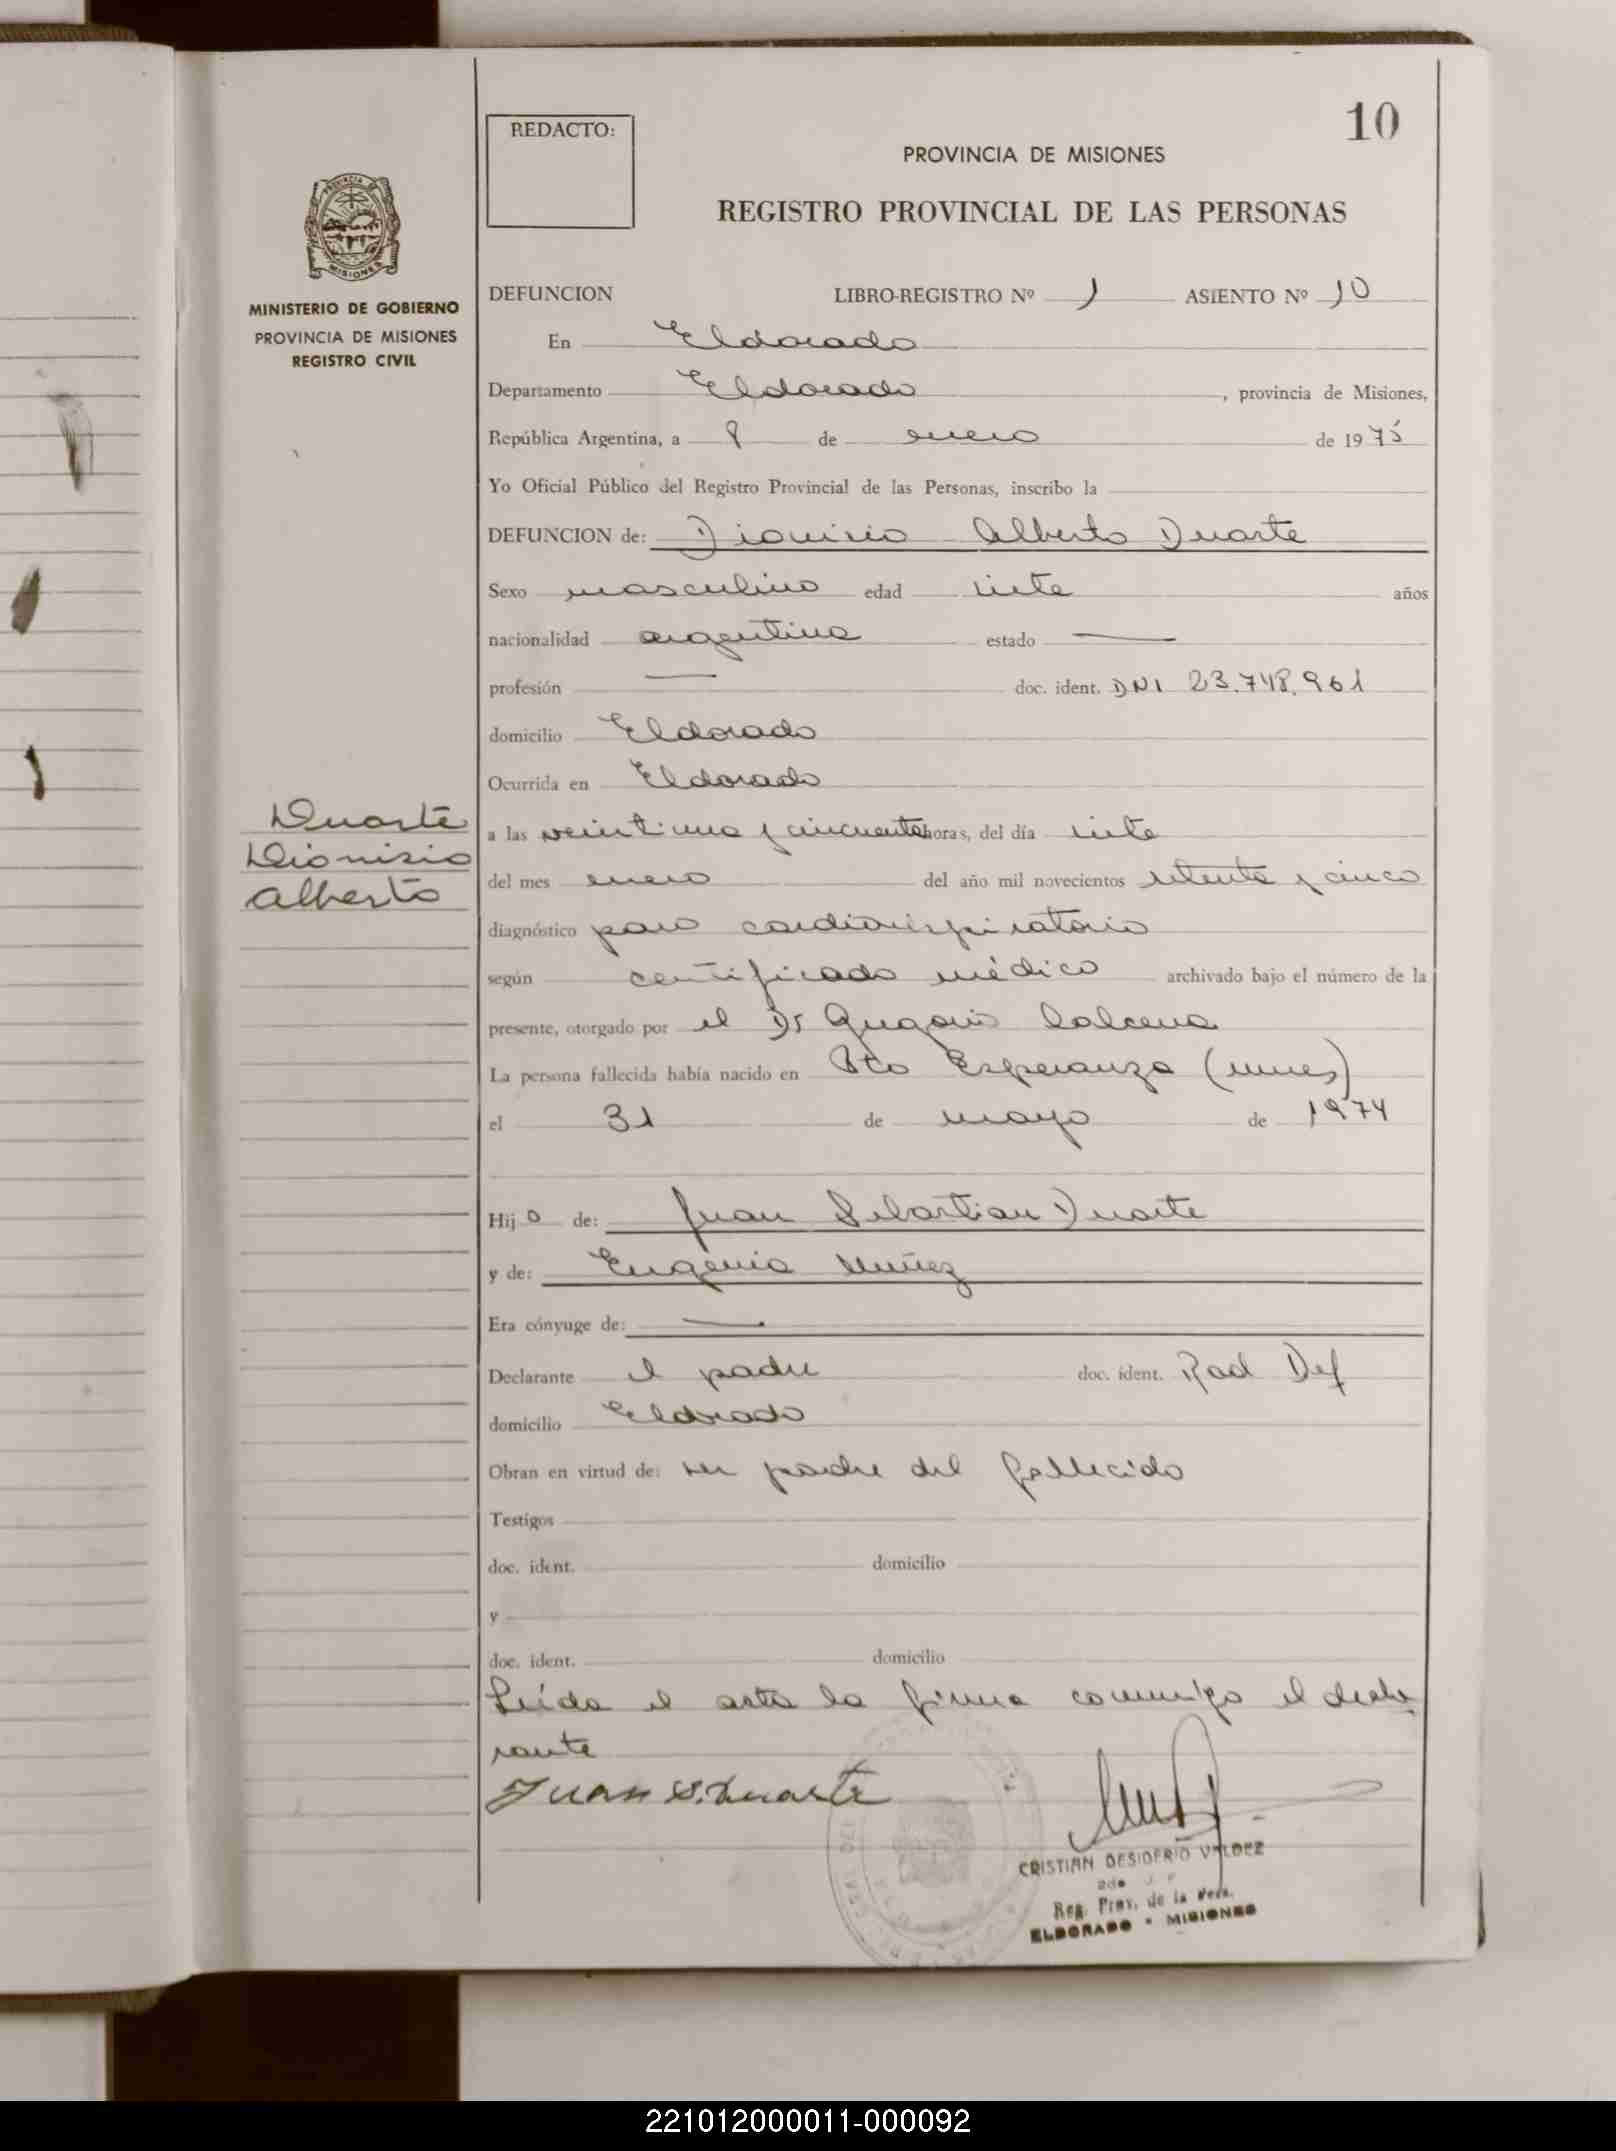 10
REDACTO:
PROVINCIA DE MISIONES
REGISTRO PROVINCIAL DE LAS PERSONAS
MINISTERIO DE GOBIERNO
PROVINCIA DE MISIONES
REGISTRO CIVIL
DEFUNCION LIBRO-REGISTRO Nº 1 ASIENTO Nº 10
En Eldorado
Departamento Eldorado, provincia de Misiones,
República Argentina, a 8 de enero de 1975
Yo Oficial Público del Registro Provincial de las Personas, inscribo la
DEFUNCION de: Dionisio Alberto Duarte
Sexo masculino edad siete años
nacionalidad argentina estado —
profesión — doc. ident. DNI 23.748.961
domicilio Eldorado
Ocurrida en Eldorado
Duarte
Dionisio
Alberto
a las veintiuna y cincuenta horas, del día siete
del mes enero del año mil novecientos setenta y cinco
diagnóstico paro cardiorespiratorio
según certificado médico archivado bajo el número de la
presente, otorgado por el Dr Gregorio
La persona fallecida había nacido en Pto Esperanza (mnes)
el 31 de mayo de 1974
Hijo de: Juan Sebastian Duarte
y de: Eugenia Nuñez
Era cónyuge de: —
Declarante el padre doc. ident. Rad Def
domicilio Eldorado
Obran en virtud de: ser padre del fallecido
Testigos
doc. ident. domicilio
y
doc. ident. domicilio
Leída el acta la firma conmigo el decla
rante
Juan S. Duarte
CRISTIAN DESIDERIO VALDEZ
2do
Reg. Prov. de la Pers.
ELDORADO - MISIONES
221012000011-000092